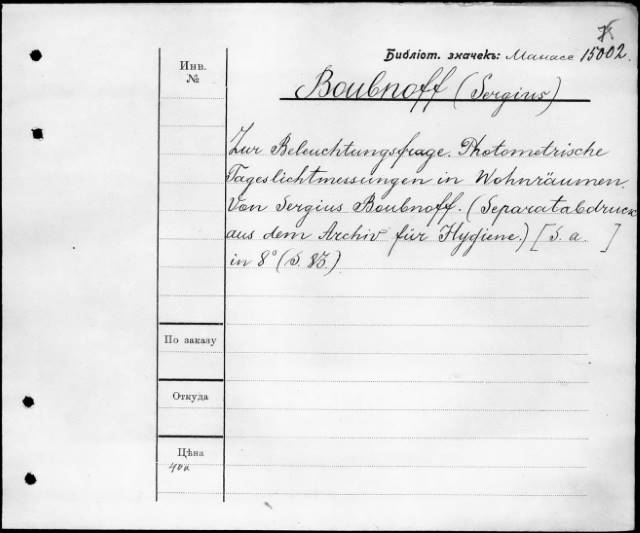 Библіот. значекъ: Манассе 15002.
Инв.
№
Boubnoff (Sergius)
Zur Beleuchtungsfrage. Photometrische
Tageslichtmessungen in Wohnräumen.
Von Sergius Boubnoff. (Separatabdruck
aus dem Archiv für Hygiene.) [S. a. ]
in 8° (S. 83.)
По заказу
Откуда
Цѣна
40к